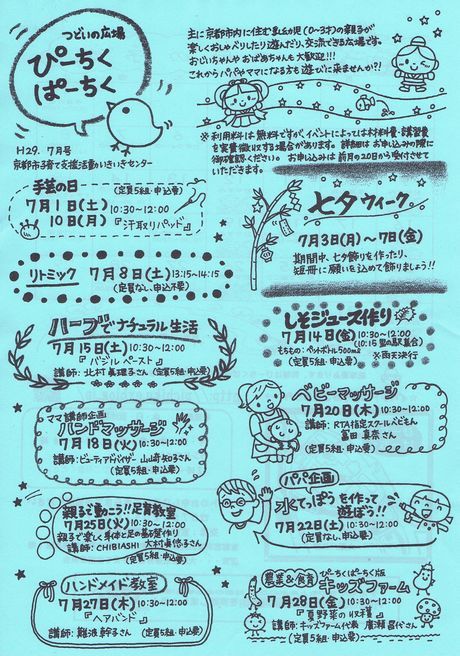 つどいの広場
ぴーちく
ぱーちく
H29. 7月号
京都市子育て支援活動いきいきセンター
主に京都市内に住む乳幼児(0〜3才)の親子が
楽しくおしゃべりしたり遊んだり、交流できる広場です。
おじいちゃんや おばあちゃんも 大歓迎!!!
これからパパやママになる方も 遊びに来ませんか?!
※利用料は 無料ですが、イベントによっては材料費・講習費
を実費徴収する場合があります。詳細はお申し込みの際に
御確認ください。お申し込みは 前月の20日から受付させて
いただきます。
手芸の日 (定員5組・申込要)
7月1日(土) 10:30〜12:00
10日(月) 『汗取りパッド』
七夕ウィーク
7月3日(月)〜7日(金)
期間中、七夕飾りを作ったり、
短冊に願いを込めて飾りましょう!!
リトミック 7月8日(土) 13:15〜14:15
(定員なし、申込不要)
ハーブでナチュラル生活
7月15日(土) 10:30〜12:00
『バジルペースト』
講師:北村真理子さん (定員5組・申込要)
しそジュース作り
7月14日(金) 10:30〜12:00
(10:15 集合)
もちもの:ペットボトル500ml ※雨天決行
(定員5組・申込要)
ママ講師企画
ハンドマッサージ
7月18日(火) 10:30〜12:00
講師:ビューティアドバイザー 山崎知子さん
(定員5組・申込要)
ベビーマッサージ
7月20日(木) 10:30〜12:00
講師:RTA指定スクールべびもん
冨田真奈さん
(定員5組・申込要)
親子で動こう!!足育教室
7月25日(火) 10:30〜12:00
親子で楽しく身体と足の基礎作り
講師:CHIBIASHI 大村真悠子さん
(定員5組・申込要)
パパ企画
水てっぽうを作って
遊ぼう!!
7月22日(土) 10:30〜12:00
(定員なし、申込要)
ハンドメイド教室
7月27日(木) 10:30〜12:00
『ヘアバンド』
講師:難波幹子さん (定員5組・申込要)
農業&食育 ぴーちくぱーちく版
キッズファーム
7月28日(金) 10:30〜12:00
『夏野菜の収穫』
講師:キッズファーム代表 廣瀬昌代さん
(定員5組・申込要)